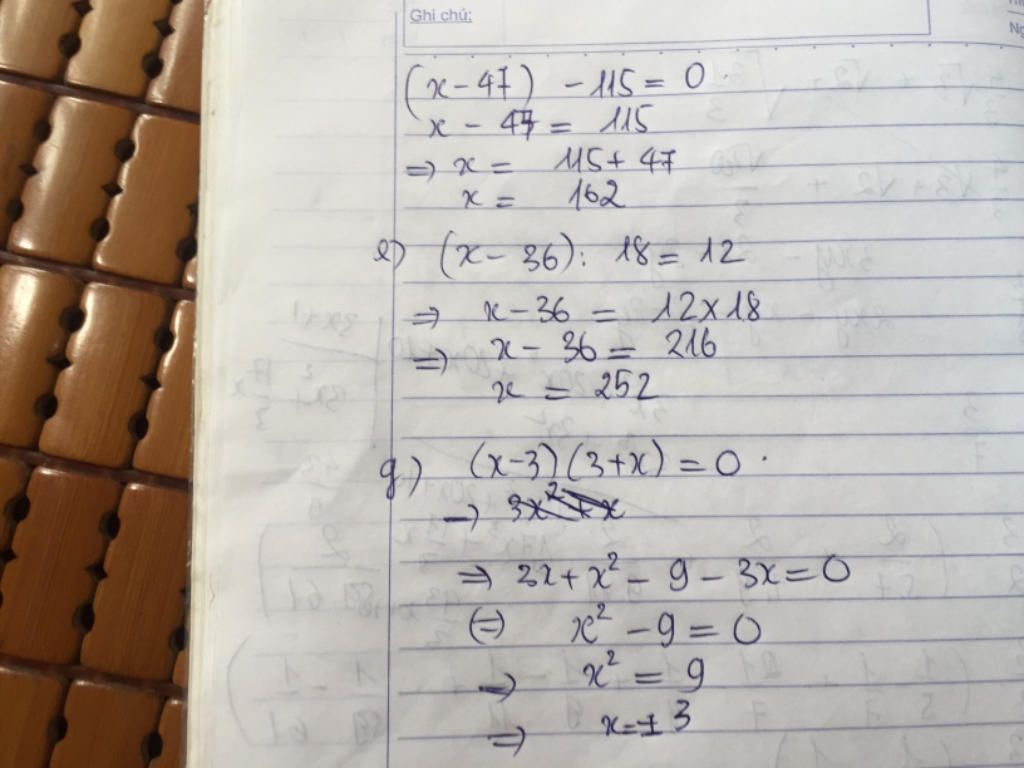 Ghi chú:
(x - 47) - 115 = 0
x - 47 = 115
⇒ x = 115 + 47
x = 162
e) (x - 36) : 18 = 12
⇒ x - 36 = 12 x 18
⇒ x - 36 = 216
x = 252
g) (x - 3) (3 + x) = 0
→ 3x² + x
⇒ 3x + x² - 9 - 3x = 0
(=) x² - 9 = 0
→ x² = 9
⇒ x = ± 3